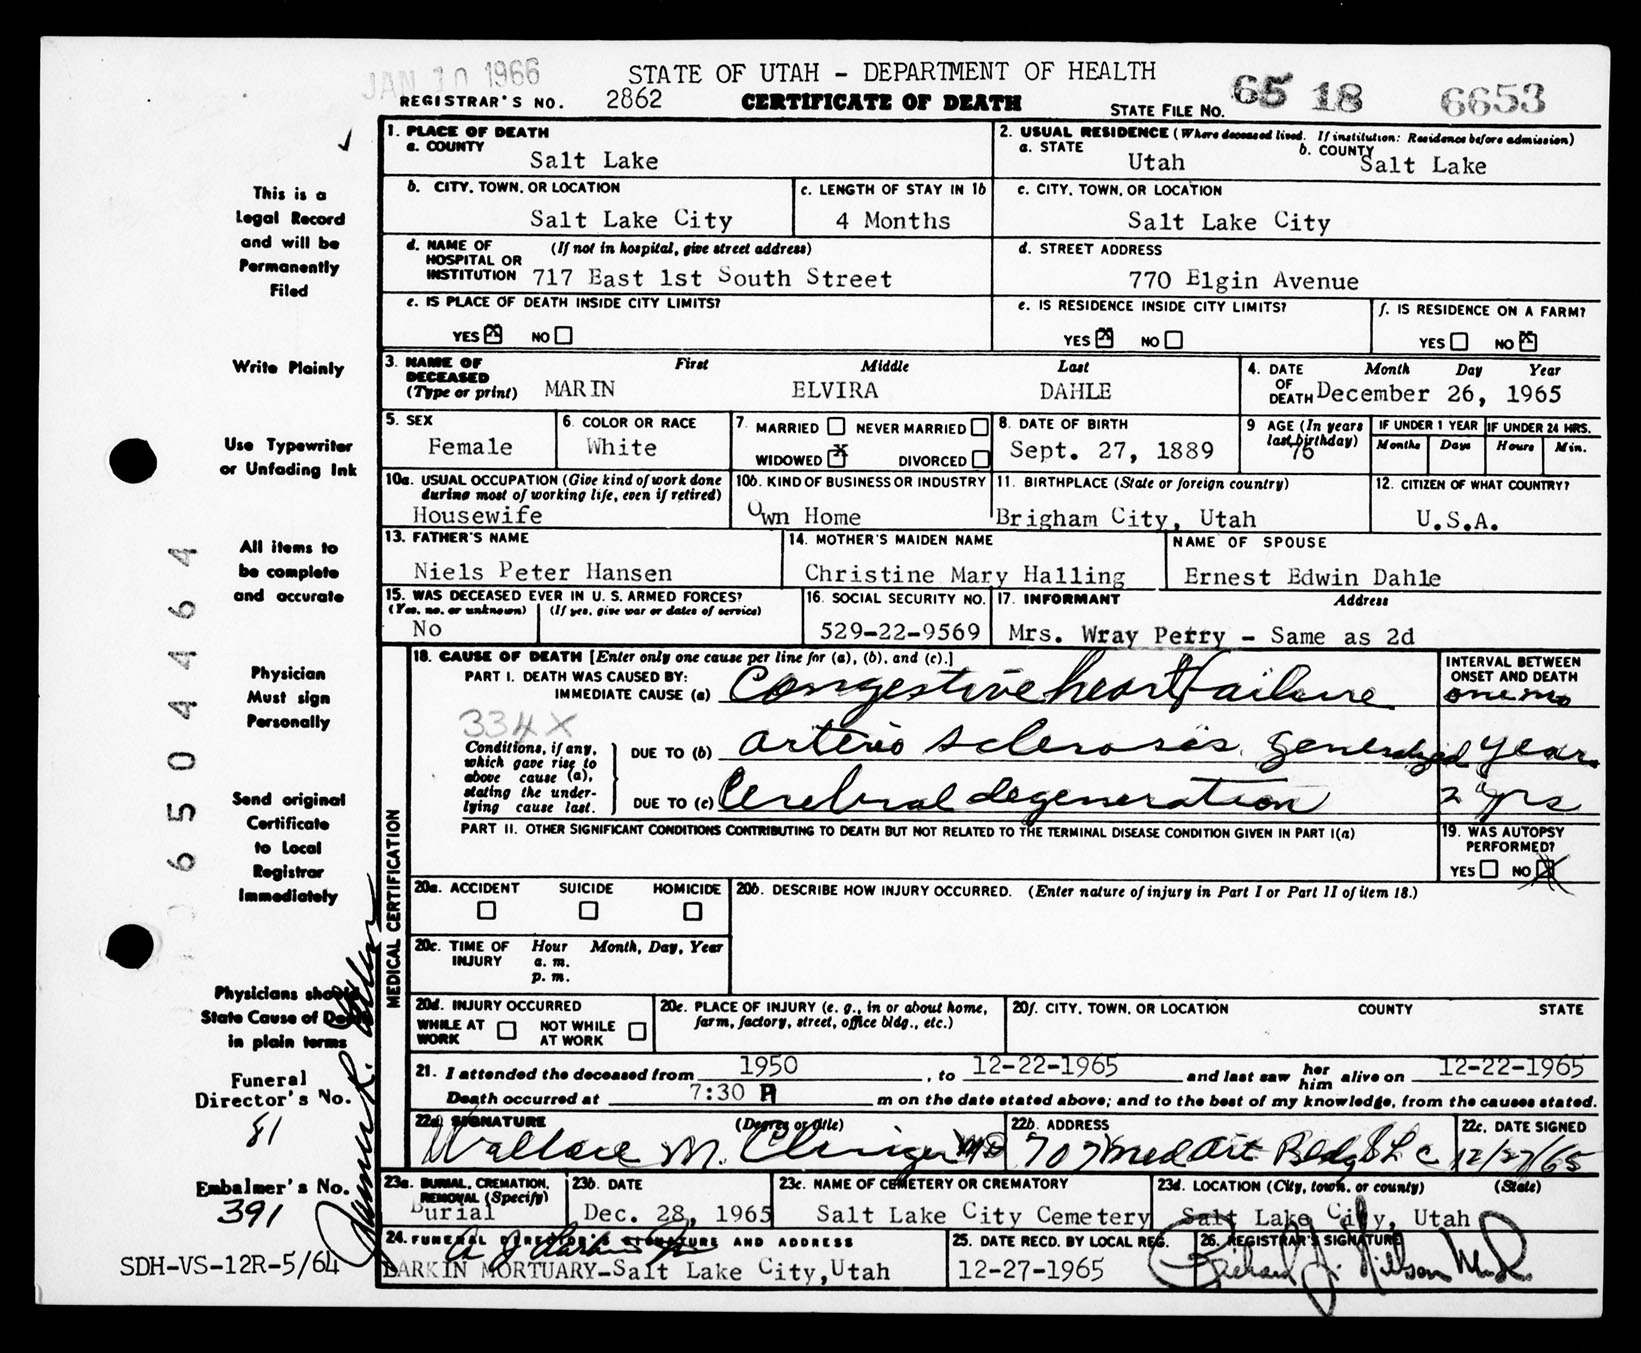 JAN 10 1966
STATE OF UTAH - DEPARTMENT OF HEALTH
REGISTRAR'S NO. 2862 CERTIFICATE OF DEATH STATE FILE NO. 65 18 6653
1. PLACE OF DEATH
a. COUNTY
Salt Lake
2. USUAL RESIDENCE (Where deceased lived. If institution: Residence before admission)
a. STATE Utah b. COUNTY Salt Lake
b. CITY, TOWN, OR LOCATION
Salt Lake City
c. LENGTH OF STAY IN 1b
4 Months
c. CITY, TOWN, OR LOCATION
Salt Lake City
d. NAME OF HOSPITAL OR INSTITUTION (If not in hospital, give street address)
717 East 1st South Street
d. STREET ADDRESS
770 Elgin Avenue
e. IS PLACE OF DEATH INSIDE CITY LIMITS?
YES X NO
e. IS RESIDENCE INSIDE CITY LIMITS?
YES X NO
f. IS RESIDENCE ON A FARM?
YES NO X
3. NAME OF DECEASED (Type or print) First Middle Last
MARIN ELVIRA DAHLE
4. DATE OF DEATH Month Day Year
December 26, 1965
5. SEX
Female
6. COLOR OR RACE
White
7. MARRIED NEVER MARRIED
WIDOWED X DIVORCED
8. DATE OF BIRTH
Sept. 27, 1889
9 AGE (In years last birthday)
76
IF UNDER 1 YEAR
Months Days
IF UNDER 24 HRS.
Hours Min.
10a. USUAL OCCUPATION (Give kind of work done during most of working life, even if retired)
Housewife
10b. KIND OF BUSINESS OR INDUSTRY
Own Home
11. BIRTHPLACE (State or foreign country)
Brigham City, Utah
12. CITIZEN OF WHAT COUNTRY?
U.S.A.
13. FATHER'S NAME
Niels Peter Hansen
14. MOTHER'S MAIDEN NAME
Christine Mary Halling
NAME OF SPOUSE
Ernest Edwin Dahle
15. WAS DECEASED EVER IN U. S. ARMED FORCES?
(Yes, no, or unknown) (If yes, give war or dates of service)
No
16. SOCIAL SECURITY NO.
529-22-9569
17. INFORMANT Address
Mrs. Wray Perry - Same as 2d
MEDICAL CERTIFICATION
18. CAUSE OF DEATH [Enter only one cause per line for (a), (b), and (c).]
PART I. DEATH WAS CAUSED BY:
IMMEDIATE CAUSE (a) Congestive heart failure
INTERVAL BETWEEN ONSET AND DEATH
one mo
334X
Conditions, if any, which gave rise to above cause (a), stating the underlying cause last.
DUE TO (b) arterio sclerosis, generalized years
DUE TO (c) Cerebral degeneration 2 yrs
PART II. OTHER SIGNIFICANT CONDITIONS CONTRIBUTING TO DEATH BUT NOT RELATED TO THE TERMINAL DISEASE CONDITION GIVEN IN PART I(a)
19. WAS AUTOPSY PERFORMED?
YES NO X
20a. ACCIDENT SUICIDE HOMICIDE
20b. DESCRIBE HOW INJURY OCCURRED. (Enter nature of injury in Part I or Part II of item 18.)
20c. TIME OF INJURY Hour Month, Day, Year
a. m.
p. m.
20d. INJURY OCCURRED
WHILE AT WORK NOT WHILE AT WORK
20e. PLACE OF INJURY (e. g., in or about home, farm, factory, street, office bldg., etc.)
20f. CITY, TOWN, OR LOCATION COUNTY STATE
21. I attended the deceased from 1950, to 12-22-1965 and last saw her him alive on 12-22-1965
Death occurred at 7:30 P m on the date stated above; and to the best of my knowledge, from the causes stated.
22a SIGNATURE (Degree or title)
Wallace M. Clinger MD
22b. ADDRESS
707 Med Art Bldg SLC
22c. DATE SIGNED
12/27/65
23a. BURIAL, CREMATION, REMOVAL (Specify)
Burial
23b. DATE
Dec. 28, 1965
23c. NAME OF CEMETERY OR CREMATORY
Salt Lake City Cemetery
23d. LOCATION (City, town, or county) (State)
Salt Lake City, Utah
24. FUNERAL DIRECTOR'S SIGNATURE AND ADDRESS
LARKIN MORTUARY-Salt Lake City, Utah
25. DATE RECD. BY LOCAL REG.
12-27-1965
26. REGISTRAR'S SIGNATURE
Richard J. Nilson M.D.
This is a
Legal Record
and will be
Permanently
Filed
Write Plainly
Use Typewriter
or Unfading Ink
All items to
be complete
and accurate
Physician
Must sign
Personally
Send original
Certificate
to Local
Registrar
Immediately
Physicians should
State Cause of Death
in plain terms
Funeral
Director's No.
81
Embalmer's No.
391
SDH-VS-12R-5/64
6504464
James R.